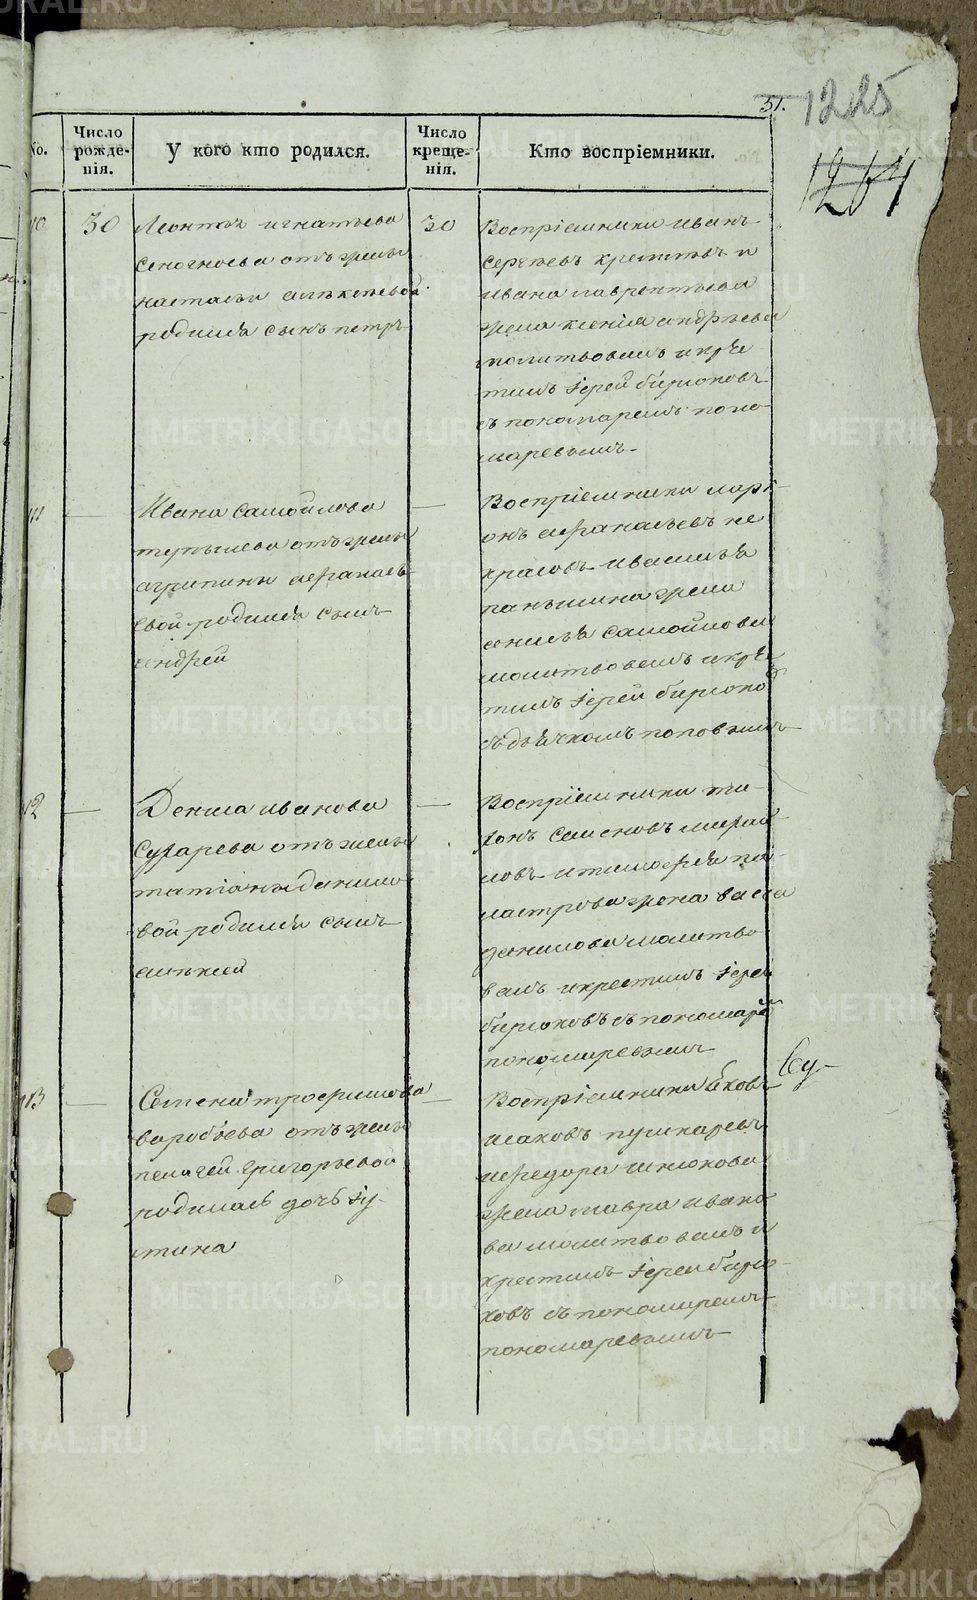 METRIKI.GASO-URAL.RU
51.
1225
1264
No.
Число рожде- нія.
У кого кто родился.
Число креще- нія.
Кто воспріемники.
30
Леонтья игнатьева
отъ жены
настасьи алексѣевой
родился сынъ петръ
30
Воспріемники иванъ
сергѣевъ и
ивана лаврентьева
жена ксенія андрѣева
молитвовалъ и кре
тилъ Іерей бирюковъ
съ пономаремъ поно-
маревымъ
Ивана самойлова
отъ жены
агрипины афанасье-
вой родился сынъ
андрей
Воспріемники
афанасьевъ не
красовъ
жена
самойлова
молитвовалъ и кре
тилъ Іерей бирюко
съ дьячкомъ поповымъ
12
Дениса иванова
Сухарева отъ жены
татіаны данило
вой родился сынъ
алексей
Воспріемники ти-
хонъ семеновъ
жена васса
данилова молитво
валъ и крестилъ Іерей
бирюковъ съ пономаре
пономаревымъ
13
Семена трофимова
воробьева отъ жены
пелагеи григорьевой
родилась дочь Іу-
стина
Воспріемники
исаковъ пушкаревъ
и федора
жена мавра ивано
ва молитвовалъ и
крестилъ Іерей бирю-
ковъ съ пономаремъ
пономаревымъ